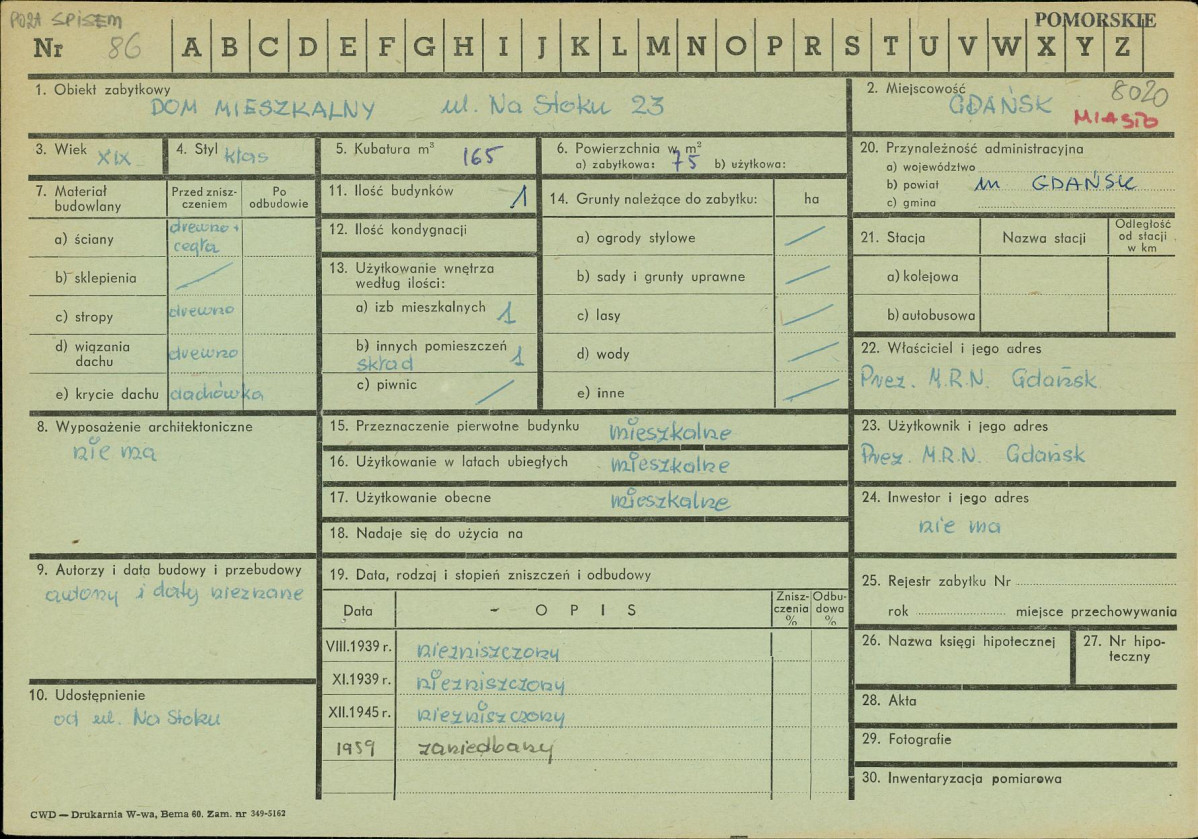 POZA SPISEM
POMORSKIE
Nr 86 A B C D E F G H I J K L M N O P R S T U V W X Y Z
1. Obiekt zabytkowy
DOM MIESZKALNY ul. Na Stoku 23
2. Miejscowość 8020
GDAŃSK
MIASTO
3. Wiek XIX
4. Styl klas
5. Kubatura m³ 165
6. Powierzchnia w m²
a) zabytkowa: 75 b) użytkowa:
20. Przynależność administracyjna
a) województwo
b) powiat m GDAŃSK
c) gmina
7. Materiał budowlany
Przed znisz-
czeniem
Po
odbudowie
a) ściany drewno +
cegła
b) sklepienia
c) stropy drewno
d) wiązania
dachu drewno
e) krycie dachu dachówka
11. Ilość budynków 1
12. Ilość kondygnacji
13. Użytkowanie wnętrza
według ilości:
a) izb mieszkalnych 1
b) innych pomieszczeń
skład 1
c) piwnic
14. Grunty należące do zabytku: ha
a) ogrody stylowe
b) sady i grunty uprawne
c) lasy
d) wody
e) inne
21. Stacja Nazwa stacji
Odległość
od stacji
w km
a) kolejowa
b) autobusowa
22. Właściciel i jego adres
Prez. M.R.N. Gdańsk
8. Wyposażenie architektoniczne
nie ma
15. Przeznaczenie pierwotne budynku mieszkalne
16. Użytkowanie w latach ubiegłych mieszkalne
17. Użytkowanie obecne mieszkalne
18. Nadaje się do użycia na
23. Użytkownik i jego adres
Prez. M.R.N. Gdańsk
24. Inwestor i jego adres
nie ma
9. Autorzy i data budowy i przebudowy
autorzy i daty nieznane
19. Data, rodzaj i stopień zniszczeń i odbudowy
Data - O P I S
Znisz-
czenia
%
Odbu-
dowa
%
VIII.1939 r. niezniszczony
XI.1939 r. niezniszczony
XII.1945 r. niezniszczony
1959 zaniedbany
10. Udostępnienie
od ul. Na Stoku
25. Rejestr zabytku Nr
rok miejsce przechowywania
26. Nazwa księgi hipotecznej
27. Nr hipo-
teczny
28. Akta
29. Fotografie
30. Inwentaryzacja pomiarowa
CWD — Drukarnia W-wa, Bema 60. Zam. nr 349-5162